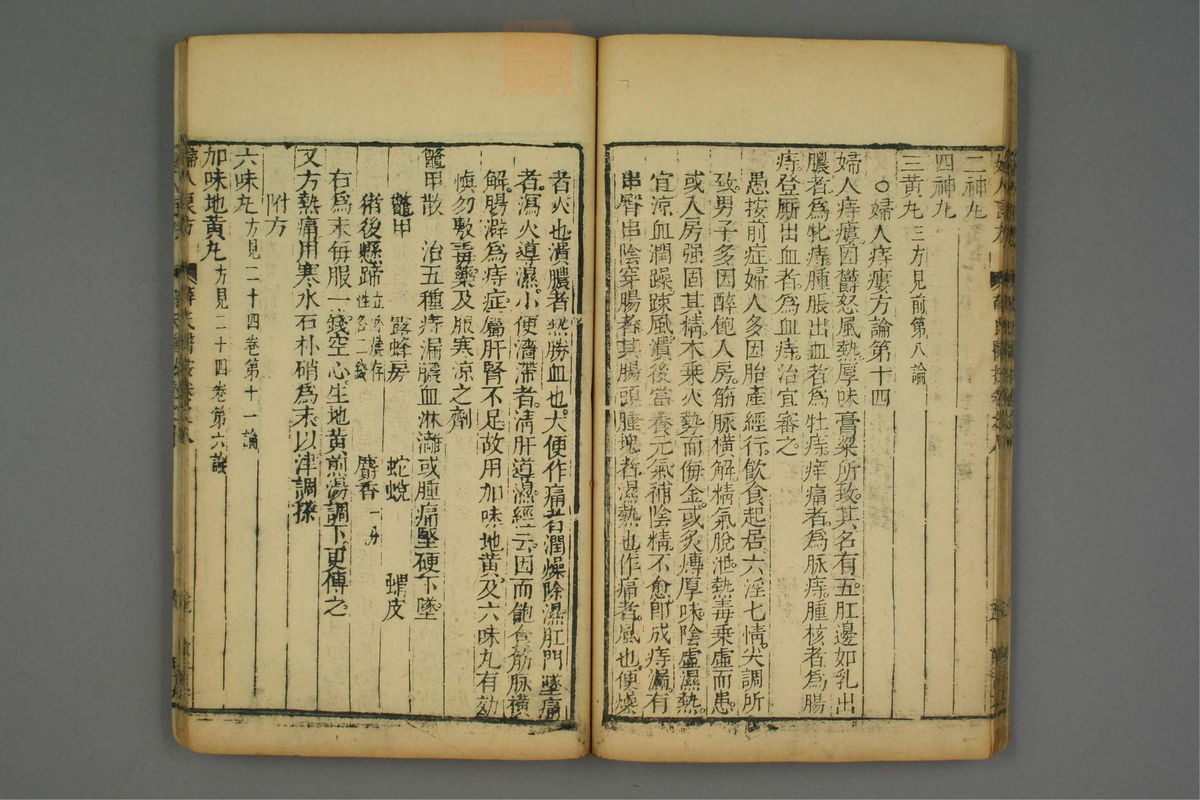 二神丸
四神丸
三黃丸 三方見前第八論
○婦人痔瘻方論第十四
婦人痔瘻因鬱怒風熱厚味膏粱所致其名有五肛邊如乳出
膿者為牝痔腫脹出血者為牡痔痒痛者為脈痔腫核者為腸
痔登厠出血者為血痔治宜審之
愚按前症婦人多因胎產經行飲食起居六淫七情失調所
致男子多因醉飽入房筋脈橫解精氣脫泄熱毒乘虛而患
或入房强固其精木乘火勢而侮金或炙煿厚味陰虛濕熱
宜涼血潤躁疎風潰後當養元氣補陰精不愈即成痔漏有
串臀串陰穿腸者其腸頭腫塊者濕熱也作痛者風也便燥
者火也潰膿者熱勝血也大便作痛者潤燥除濕肛門墜痛
者瀉火導濕小便濇滯者清肝導濕經云因而飽食筋脈橫
解腸澼為痔症屬肝腎不足故用加味地黃及六味丸有効
慎勿敷毒藥及服寒涼之劑
鼈甲散 治五種痔漏膿血淋瀝或腫痛堅硬下墜
鼈甲 露蜂房 蛇蛻 蝟皮
猪後縣蹄 各二錢 麝香 一分
右為末每服一錢空心生地黃煎湯調下更傅之
又方熱痛用寒水石朴硝為末以津調搽
附方
六味丸 方見二十四卷第十一論
加味地黃丸 方見二十四卷第六論